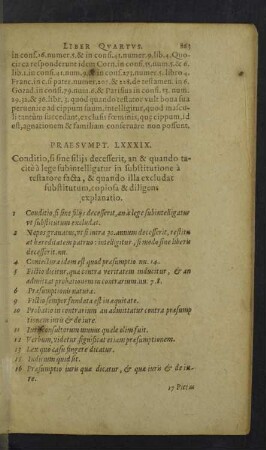 LIBER QVARTVS. 863
in cons.16. numer.5. & in cons.31. numer.9. lib.4. Quo-
circa responderunt idem Corn. in cons.35. num.5. & 6.
lib.1. in cons.41. num. & in cons.273. numer.5. libro 4.
Franc. in c. si pater. numer. 207. 218. de testamen. in 6.
Gozad. in cons.79. num.6. & Parisius in cons.15. num.
29.31. & 20. libr. 3. quod quando testator vult bona sua
peruenire ad aliquorum manus, intelligatur, quod mascu-
li tantùm succedant, exclusis fœminis, quę cippum, id
est, agnationem & familiam conseruare non possunt.
PRAESVMPT. LXXXIX.
Conditio, si sine filijs decesserit, an & quando ta-
citè à lege subintelligatur in substitutione à
testatore facta, & quando illa excludat
substitutum, copiosa & diligens
explanatio.
1 Conditio si sine filijs decesserit, an à lege subintelligatur
vt substitutum excludat.
2 Nepos grauatus, vt si intra 30. annum decesserit, restitu
at hæreditatem patruo: intelligitur, si modo sine liberis
decesserit. nu.
4 Coniectura idem est quod præsumptio nu. 14.
5 Fictio dicitur, quæ contra veritatem inducitur, & an
admittat probationem in contrarium. nu. 7.8.
6 Præsumptionis natura.
9 Fictio semper fundata est in æquitate.
10 Probatio in contrarium an admittatur contra præsump
tionem iuris & de iure.
11 Iurisconsultorum munus quale olim fuit.
12 Verbum, videtur significat etiam præsumptionem.
13 Lex quo casu fingere dicatur.
15 Indicium quid sit.
16 Præsumptio iuris quæ dicatur, & quæ iuris & de iu-
re.
17 Pietas